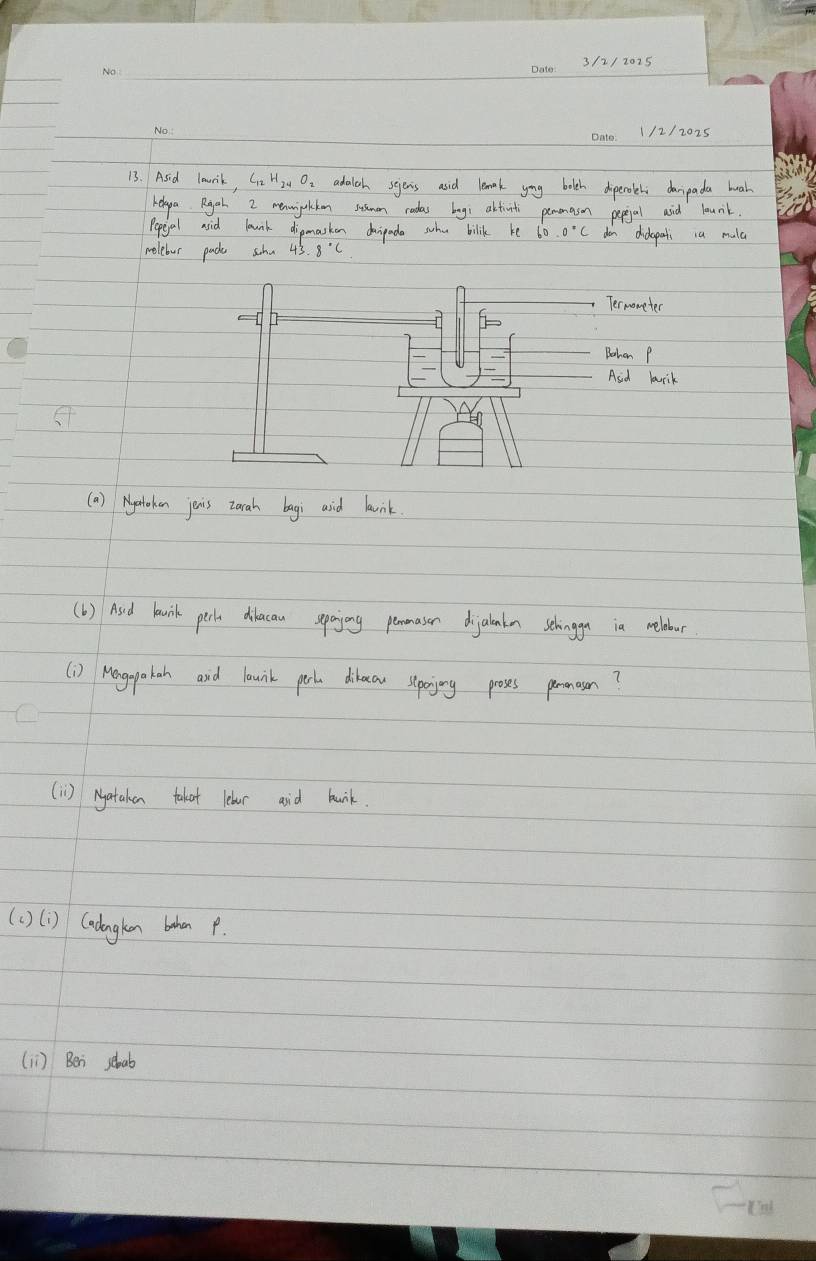 No.: Date: 3/2/2025
No.: Date: 1/2/2025
13. Asid laurik, C12 H24 O2 adalah sejenis asid lemak yang boleh diperolehi daripada buah
kelapa. Rajah 2 menunjukkan susunan radas bagi aktiviti pemanasan pepejal asid laurik.
Pepejal asid laurik dipanaskan daripada suhu bilik ke 60.0°C dan didapati ia mula
melebur pada suhu 43.8°C.
Termometer
Bahan P
Asid laurik
(a) Nyatakan jenis zarah bagi asid laurik.
(b) Asid laurik perlu dikacau sepanjang pemanasan dijalankan sehingga ia melebur.
(i) Mengapakah asid laurik perlu dikacau sepanjang proses pemanasan?
(ii) Nyatakan takat lebur asid laurik.
(c) (i) Cadangkan bahan P.
(ii) Beri sebab